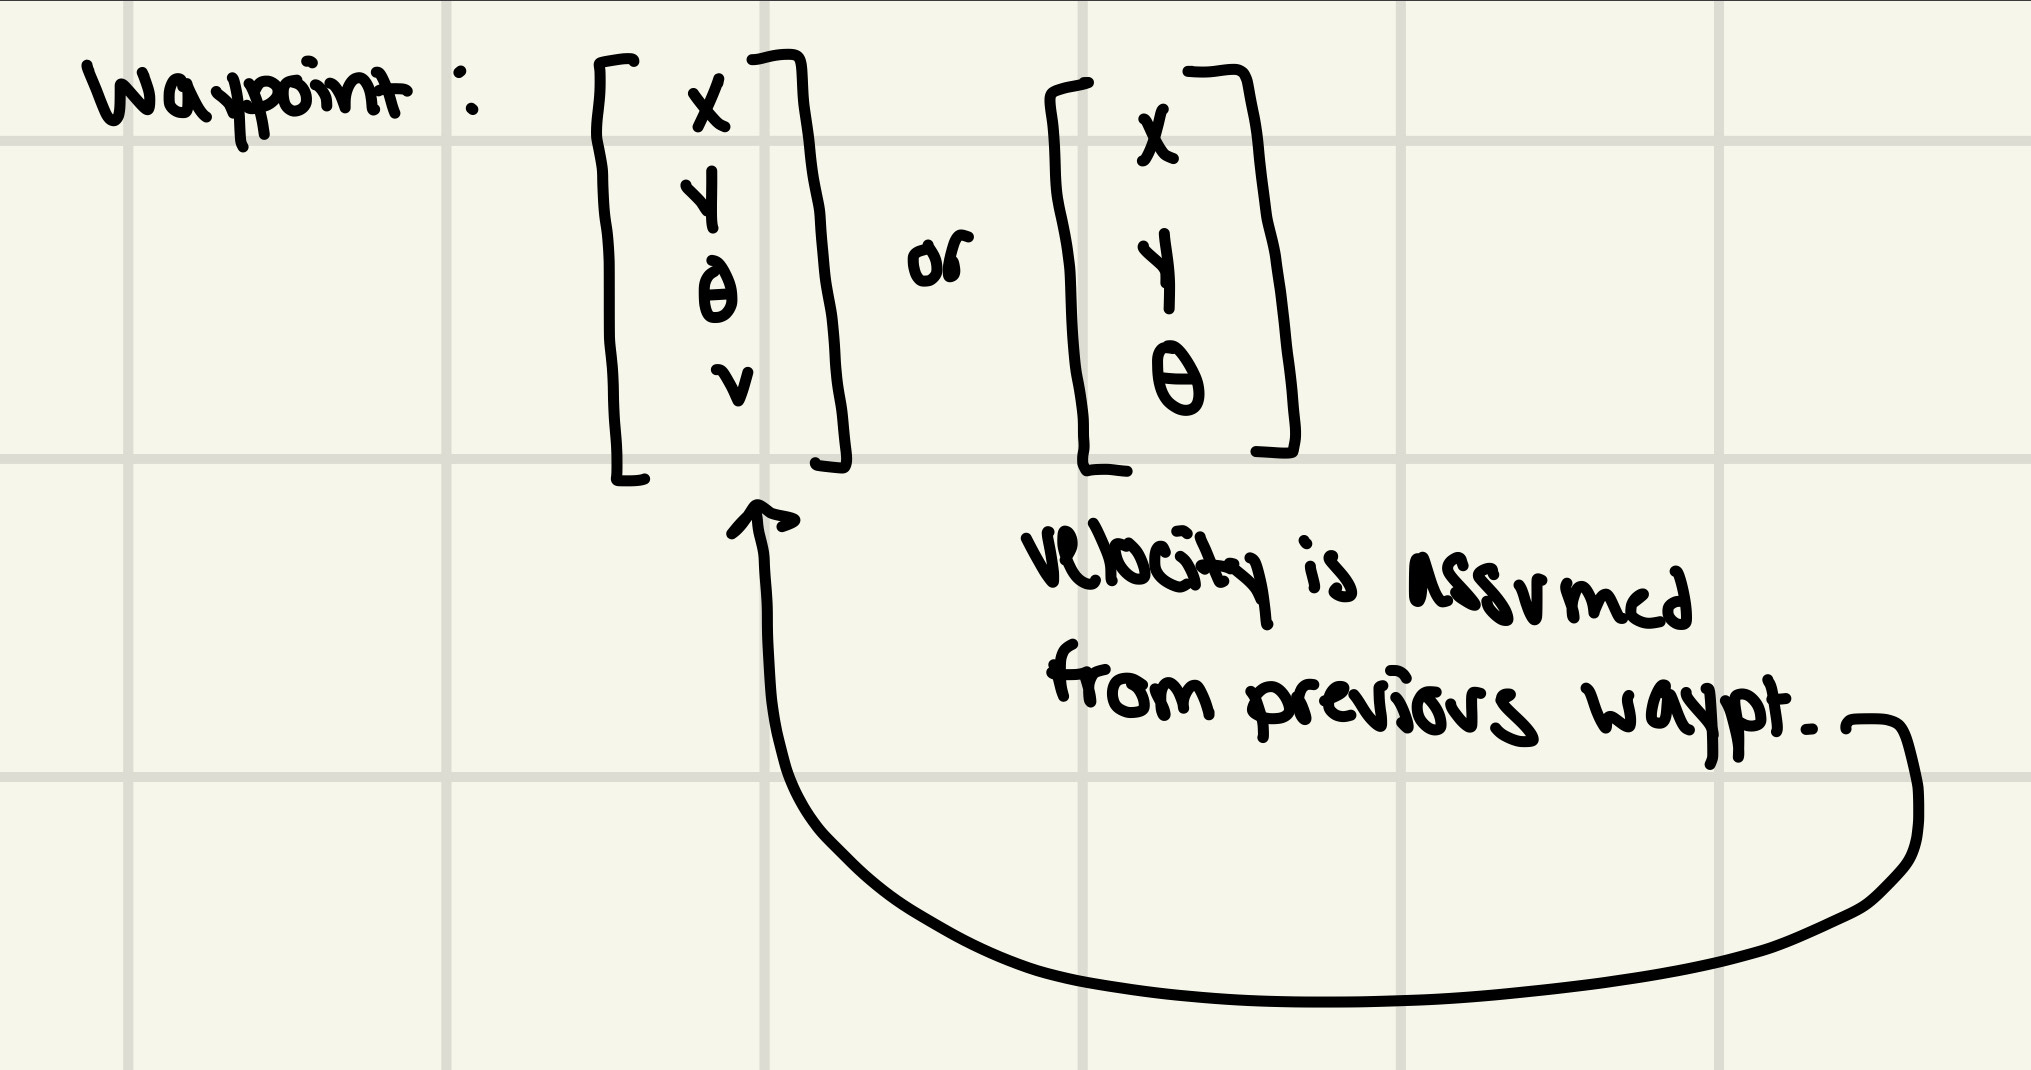 Waypoint : [x y θ v] or [x y θ]
velocity is assumed
from previous waypt.